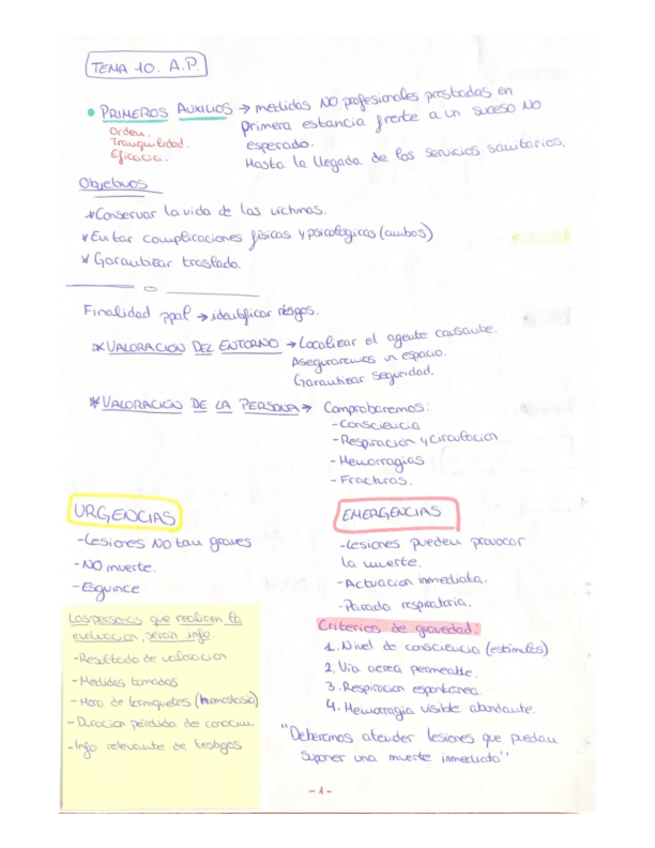 TEMA 10. A.P.
• PRIMEROS AUXILIOS → medidas NO profesionales prestadas en
primera estancia frente a un suceso NO
esperado.
Hasta la llegada de los servicios sanitarios.
Orden.
Tranquilidad.
Eficacia.
Objetivos
* Conservar la vida de las víctimas.
* Evitar complicaciones físicas y psicológicas (ambos)
* Garantizar traslado.
Finalidad ppal → identificar riesgos.
* VALORACIÓN DEL ENTORNO → Localizar el agente causante.
Aseguraremos un espacio.
Garantizar seguridad.
* VALORACIÓN DE LA PERSONA → Comprobaremos:
- Consciencia
- Respiración y Circulacion
- Hemorragias
- Fracturas.
URGENCIAS
- Lesiones NO tan graves
- NO muerte.
- Esguince
Las personas que realicen la
evaluacion, serán info.
- Resultado de valoracion
- Medidas tomadas
- Hora de torniquetes (hemostasia)
- Duracion perdida de conocim.
- Info relevante de testigos
EMERGENCIAS
- Lesiones pueden provocar
la muerte.
- Actuacion inmediata.
- Parada respiratoria.
Criterios de gravedad:
1. Nivel de consciencia (estimulos)
2. Via aerea permeable.
3. Respiracion espontanea.
4. Hemorragia visible abundante.
"Deberemos atender lesiones que puedan
suponer una muerte inmediata"
- 1 -